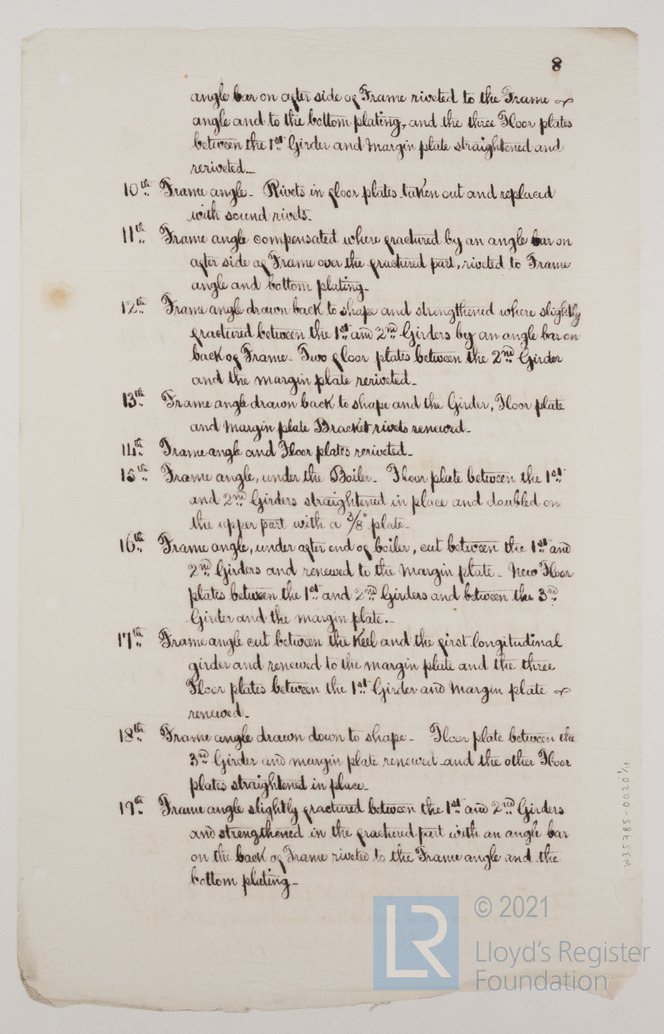 8
angle bar on after side of Frame riveted to the Frame &
angle and to the bottom plating, and the three Floor plates
between the 1st Girder and Margin plate straightened and
reriveted_
10th Frame angle_ Rivets in floor plates taken out and replaced
with sound rivets_
11th Frame angle compensated where fractured by an angle bar on
after side of Frame over the fractured part, riveted to Frame
angle and bottom plating_
12th Frame angle drawn back to shape and strengthened where slightly
fractured between the 1st and 2nd Girders by an angle bar on
back of Frame_ Two floor plates between the 2nd Girder
and the margin plate reriveted_
13th Frame angle drawn back to shape and the Girder, Floor plate
and Margin plate Bracket rivets renewed_
14th Frame angle and Floor plates reriveted_
15th Frame angle, under the Boiler_ Floor plate between the 1st
and 2nd Girders straightened in place and doubled on
the upper part with a 3/8" plate_
16th Frame angle, under after end of boiler, cut between the 1st and
2nd Girders and renewed to the Margin plate_ New Floor
plates between the 1st and 2nd Girders and between the 3rd
Girder and the margin plate._
17th Frame angle cut between the Keel and the first longitudinal
girder and renewed to the margin plate and the three
Floor plates between the 1st Girder and Margin plate &
renewed_
18th Frame angle drawn down to shape_ Floor plate between the
3rd Girder and margin plate renewed and the other Floor
plates straightened in place_
19th Frame angle slightly fractured between the 1st and 2nd Girders
and strengthened in the fractured part with an angle bar
on the back of Frame riveted to the Frame angle and the
bottom plating_
W35785-0020 1/1
LR
© 2021
Lloyd's Register
Foundation